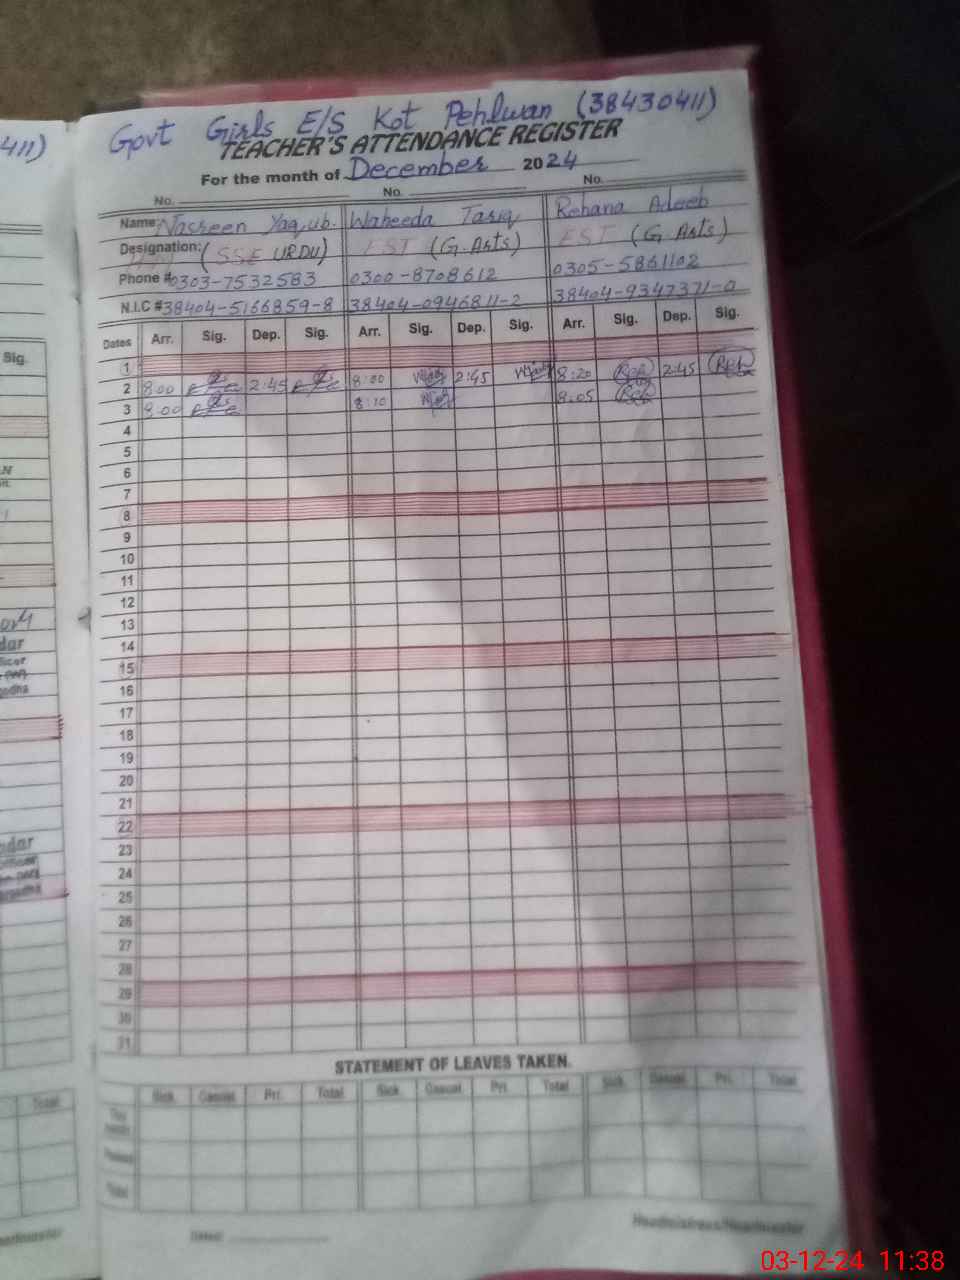 411)
Govt Girls E/S Kot Pehlwan (38430411)
TEACHER'S ATTENDANCE REGISTER
For the month of December 2024
No. No. No.
Name: Nasreen Yaqub. Waheeda Tariq Rehana Adeeb
Designation: (SSE URDU) EST (G.Arts) EST (G.Arts)
Phone # 0303-7532583 0300-8708612 0305-5861102
N.I.C # 38404-5166859-8 38404-0946811-2 38404-9347371-0
Dates Arr. Sig. Dep. Sig. Arr. Sig. Dep. Sig. Arr. Sig. Dep. Sig.
Sig.
1
2 8:00 2:45 8:00 2:45 8:20 Reh 2:45 Reh
3 8:00 8:10 8:05 Reh
4
5
6
7
8
9
10
11
12
13
14
15
16
17
18
19
20
21
22
23
24
25
26
27
28
29
30
31
STATEMENT OF LEAVES TAKEN.
Sick Casual Pri. Total Sick Casual Pri. Total Sick Casual Pri. Total
Total
Total
Dated:
Headmistress/Headmaster
03-12-24 11:38